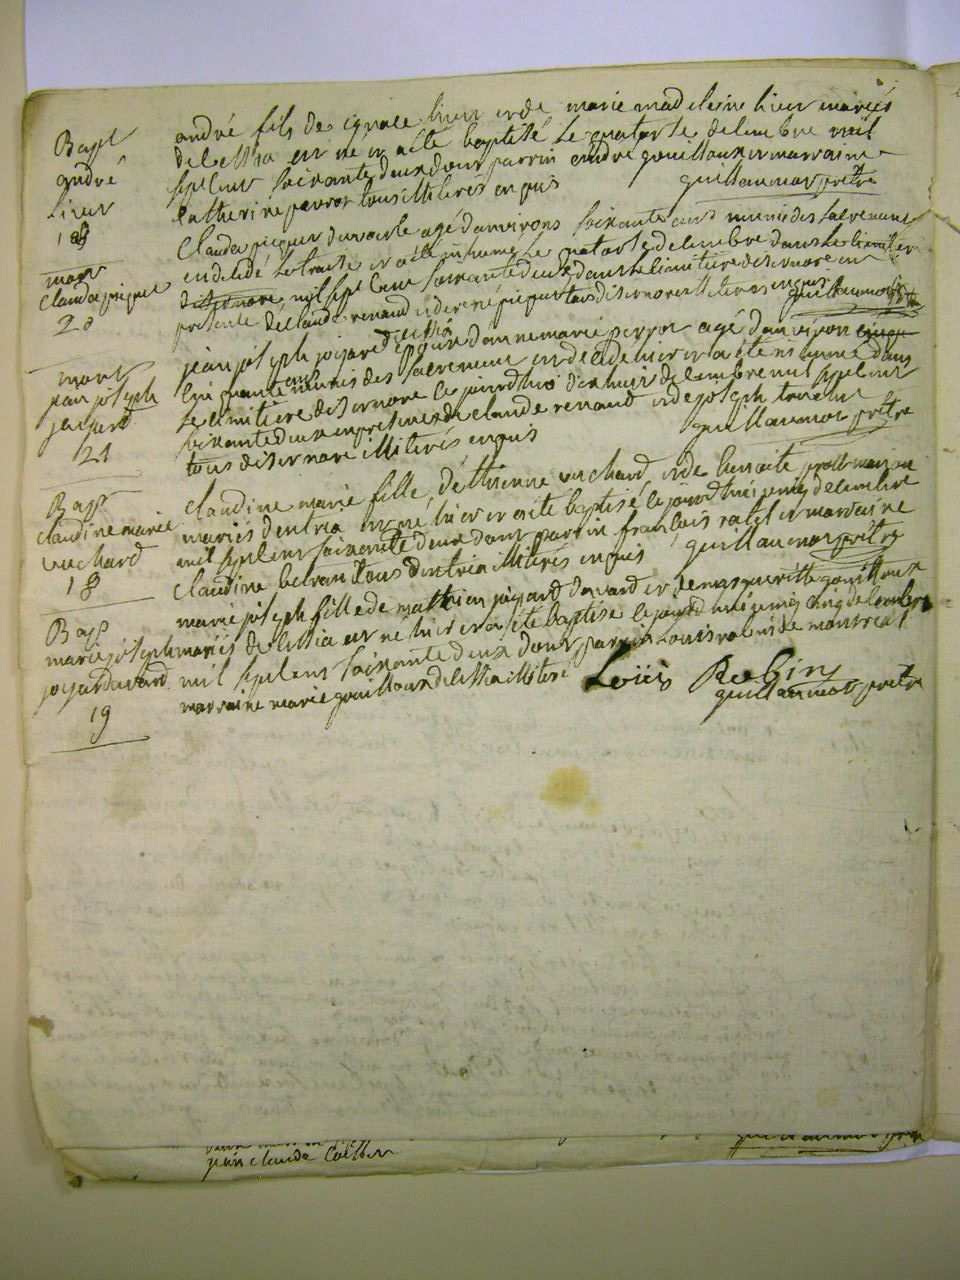 Bapt
andré
lieur
18
andré fils de ignace lieur et de marie madeleine lieur mariés
de lessia est né et a été baptisé le quatorse decembre mil
sept cent soixante deux dont parrin andré gouilloux et marraine
catherine perrot tous illiterés enquis guillaumot prêtre
mort
Claude piquet
20
Claude piquet agé d'environs soixante ans munis des sacrements
est decedé et a été inhumé le quatorse decembre dans le cimitiere
mil sept cent soixante deux dans le cimitiere disernore en
presence de claude renaud et de rené piquet tous disernore illiteres enquis guillaumot
mort
jean joseph
jojard
21
jean joseph jojard de lessia époux d'anne marie perrot agé d'environ
cinquante ans munis des sacrement est decedé hier et a été inhumé dans
le cimitiere disernore le jourdhuy dixhuit decembre mil sept cent
soixante deux en presence de claude renaud et de joseph
tous disernore illiterés enquis guillaumot prêtre
Bapt
claudine marie
vuchard
18
Claudine marie fille d'éthienne vuchard et de benoite
mariés d'intria est né hier et a été baptisé le jourdhui decembre
mil sept cent soixante deux dont parrin françois ratel et marraine
Claudine tous d'intria illiterés enquis guillaumot prêtre
Bapt
marie joseph
jojard
19
marie joseph fille de mathieu jojard et de margueritte gouilloux
mariés de lessia est né hier et a été baptisé le jourd decembre
mil sept cent soixante deux dont parrin Louis robin de montreal
marraine marie gouilloux de lessia illiteré Loüis Robin
guillaumot prêtre
jean claude